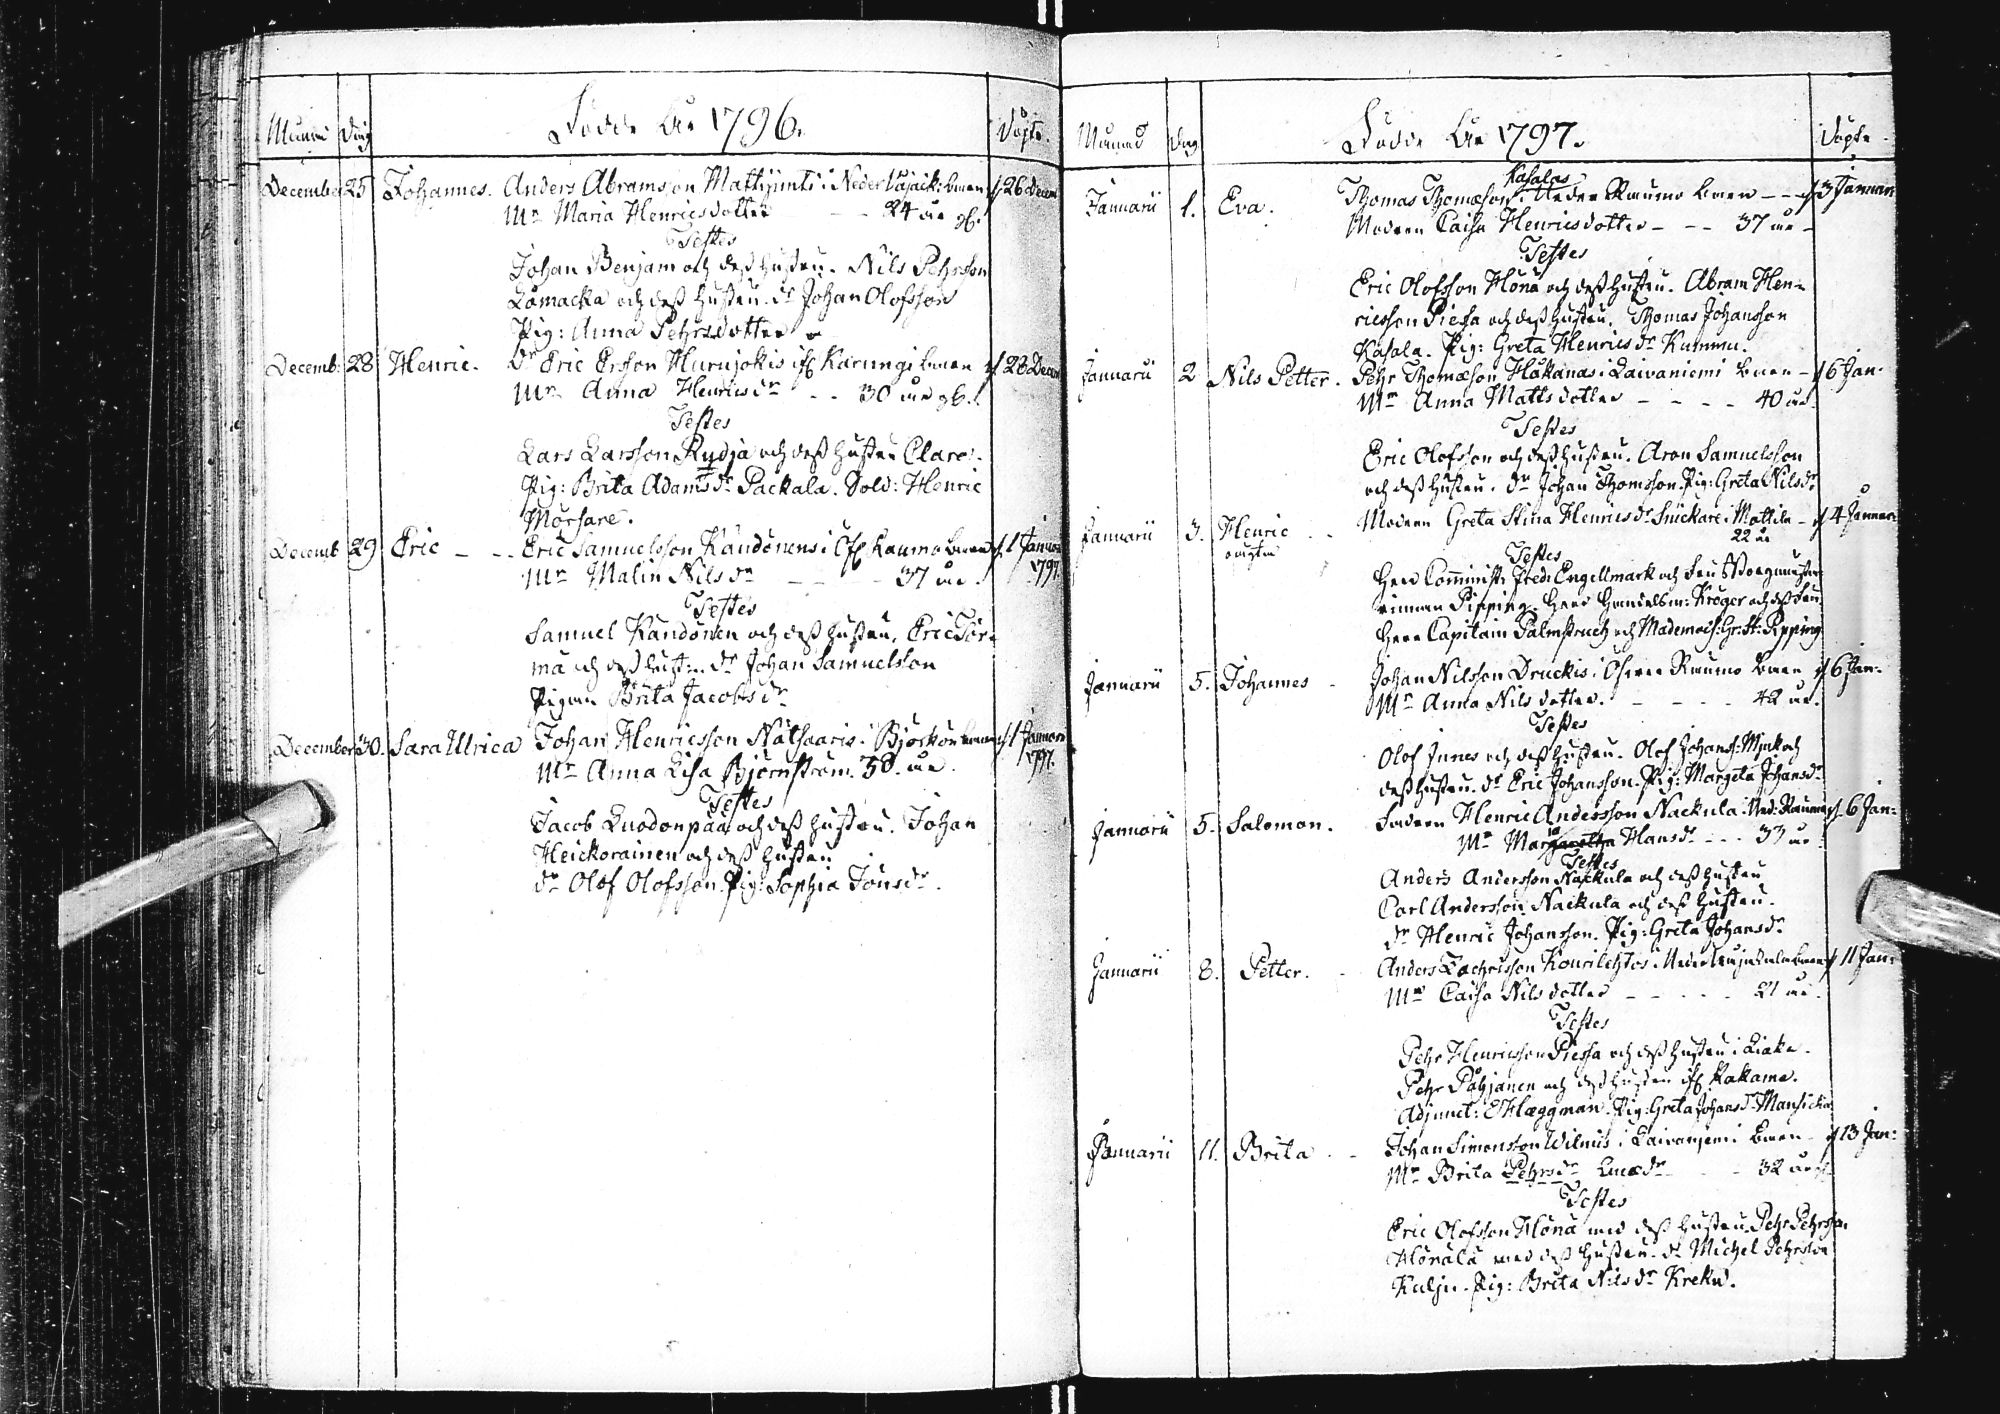 Månad Dag Födde År 1796. Döpte.
December 25 Johannes. Anders Abramsson Mattijinti i Neder Vojack: barn d 26 Decem
Mr Maria Henricsdotter - - 24 år gb.
Testes
Johan Benjam och dess hustru. Nils Pehrsson
Lomacka och dess hustru. dr Johan Olofsson
Pig: Anna Pehrsdotter
Decemb: 28 Henric. dr Eric Ersson Hurujokis if Karungi barn d 28 Decem
Mr Anna Henricsdr - - 30 år gb.
Testes
Lars Larsson Rydja och dess hustru Clara.
Pig: Brita Adamsdr Packala. Sold: Henric
Mörsare.
Decemb 29 Eric - - Eric Samuelsson Kandonens i Öf Raumo barn d. 1 Januar
1797.
Mr Malin Nilsdr - - - 37 år.
Testes
Samuel Kandonen och dess hustru, Eric Tör-
mä och dess hust:. dr Johan Samuelsson
Pigan Brita Jacobsdr
December 30. Sara Ulrica Johan Henricsson Nätsaaris i Björkön barn d 1 Januari
1797.
Mr Anna Lisa Björnström 38. år.
Testes
Jacob Luodonpää och dess hustru. Johan
Heickorainen och dess hustru
dr Olof Olofsson. Pig: Sophia Jönsdr.
Månad Dag Födde År 1797. Döpte.
Kasalas
Januarii 1. Eva. Thomas Thomæson i Neder Raumo barn - - d 3 Januari
Modren Caisa Henricsdotter - - - 37 år -
Testes
Eric Olofsson Hona och dess hustru. Abram Hen-
ricsson Piessa och dess hustru. Thomas Johansson
Kasala. Pig: Greta Henricsdr Kummu.
Januarii 2 Nils Petter. Pehr Thomæson Håkanas i Laivaniemi barn - d 6 Jan.
Mr Anna Mattsdotter - - - - 40 år.
Testes
Eric Olofsson och dess hustru. Aron Samuelsson
och dess hustru. dr Johan Thomsson. Pig: Greta Nilsdr
Januarii 3. Henric - - Modren Greta Stina Henricsdr Snickare i Mattila - d 4 Januari
oägta 22 år
Testes
Herr Comminist: Fred: Engellmark och Fru Borgmästar
innan Pipping. Herr Handelsm: Kröger och dess Fru
Herr Capitain Palmstruch och Mademois: Gr: St: Pipping
Januarii 5. Johannes - Johan Nilsson Druckis i Öfvre Raumo barn d 6 Jan:
Mr Anna Nilsdotter. - - - - 42 år.
Testes
Olof Junes och dess hustru. Olof Johanss: Myk och
dess hustru. dr Eric Johansson. Pig: Margeta Johansdr
Januarii 5. Salomon. Fadren Henric Andersson Nackula i Ned: Raumo d. 6 Jan:
Mr Margaretha Hansdr - - - 33 år.
Testes
Anders Andersson Nackula och dess hustru
Carl Andersson Nackula och dess hustru.
dr Henric Johansson. Pig: Greta Johansdr
Januarii 8. Petter. - Anders Zachrisson Kourilehtos i barn d 11 Jan:
Mr Caisa Nilsdotter - - - - - 21 år.
Testes
Pehr Henricsson Piessa och dess hustru i Liaka.
Pehr Pohjanen och dess hustru if Kakama.
Adjunct: E Heggman. Pig: Greta Johansdr Mansicka
Januarii 11. Brita - - Johan Simonsson Wilmis i Laivaniemi barn - d 13 Jan:
Mr Brita Pehrsdr Lucædr - - - 32 år
Testes
Eric Olofsson Hona med dess hustru. Pehr Pehrsson
Honala med dess hustru. dr Michel Pehrsson
Kulju. Pig: Brita Nilsdr Kreku.